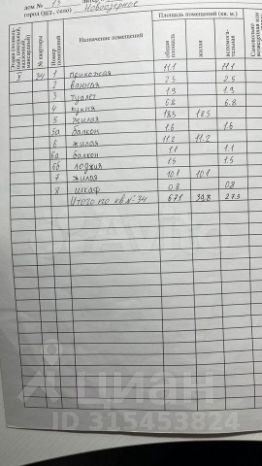 дом № 13
город (пгт, село) Новогорное
Этаж (подвальный, цокольный, мансардный)
№ квартиры
Номер помещений
Назначение помещений
Площадь помещений (кв. м.)
общая площадь
жилая
вспомогательная
3 34 1 прихожая 11.1 11.1
2 ванная 2.5 2.5
3 туалет 1.3 1.3
4 кухня 6.8 6.8
5 жилая 18.5 18.5
5а балкон 1.6 1.6
6 жилая 11.2 11.2
6а балкон 1.1 1.1
6б лоджия 1.5 1.5
7 жилая 10.1 10.1
8 шкаф 0.8 0.8
Итого по кв № 34 67.1 39.8 27.3
ЦИАН
ID 315453824